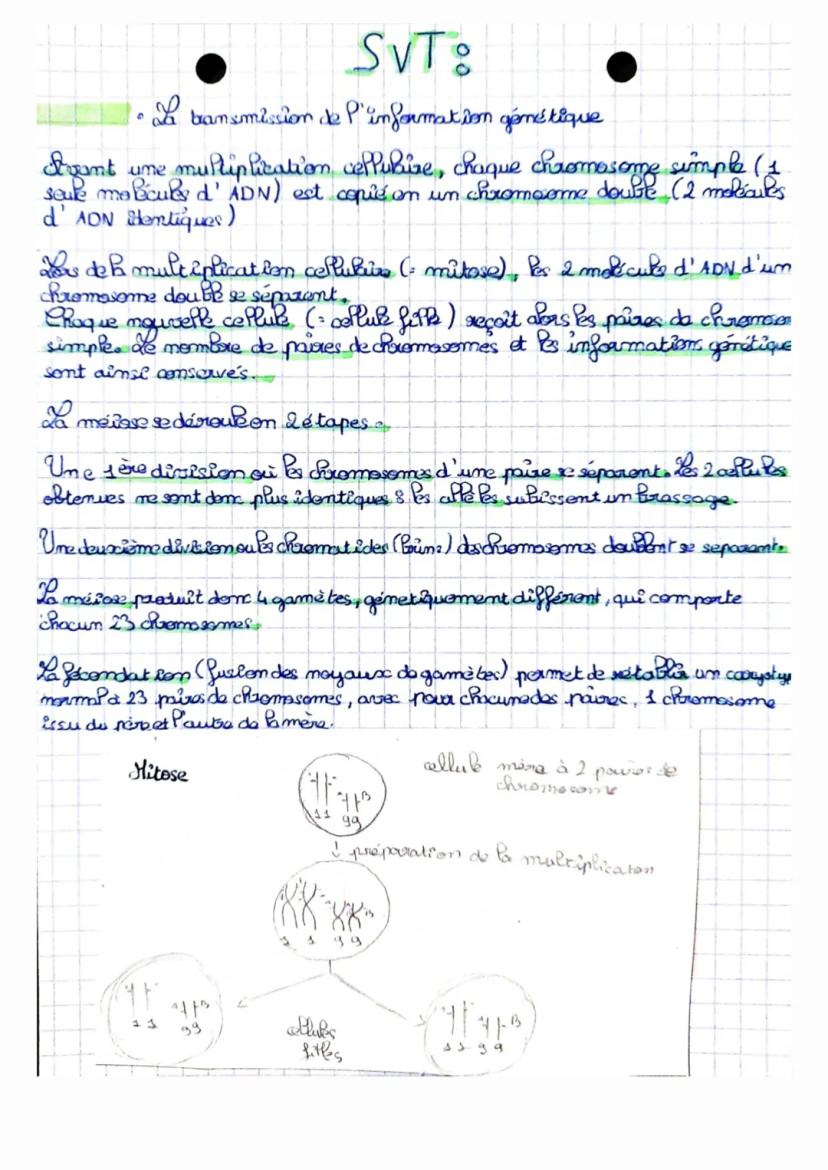 SVT :
• La transmission de l'information génétique
Avant une multiplication cellulaire, chaque chromosome simple (1
seule molécule d'ADN) est copié en un chromosome double (2 molécules
d'ADN identiques)
Lors de la multiplication cellulaire (= mitose), les 2 molécules d'ADN d'un
chromosome double se séparent.
Chaque nouvelle cellule (= cellule fille) reçoit alors les paires de chromoso
simple. Le nombre de paires de chromosomes et les informations génétique
sont ainsi conservés.
La méiose se déroule en 2 étapes :
Une 1ère division où les chromosomes d'une paire se séparent. Les 2 cellules
obtenues ne sont donc plus identiques : les allèles subissent un brassage.
Une deuxième division ou les chromatides (brins) des chromosomes doublent se separent.
La méiose produit donc 4 gamètes, génétiquement différent, qui comporte
chacun 23 chromosomes.
La fécondation (fusion des noyaux de gamètes) permet de rétablir un caryotyp
normal à 23 paires de chromosomes, avec pour chacune des paires, 1 chromosome
issu du père et l'autre de la mère.
Mitose
cellule mère à 2 paires de
chromosome
B
1 1 9 9
↓ préparation de la multiplicaton
B
1 1 9 9
B
1 1 9 9
cellules
filles
B
1 1 9 9